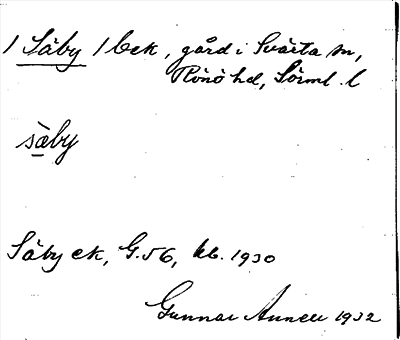 1 Säby 1 bek, gård i Svärta sn,
Rönö hd, Sörml. l
säby
Säby ek, G. 56, kb. 1930
Gunnar Annell 1932